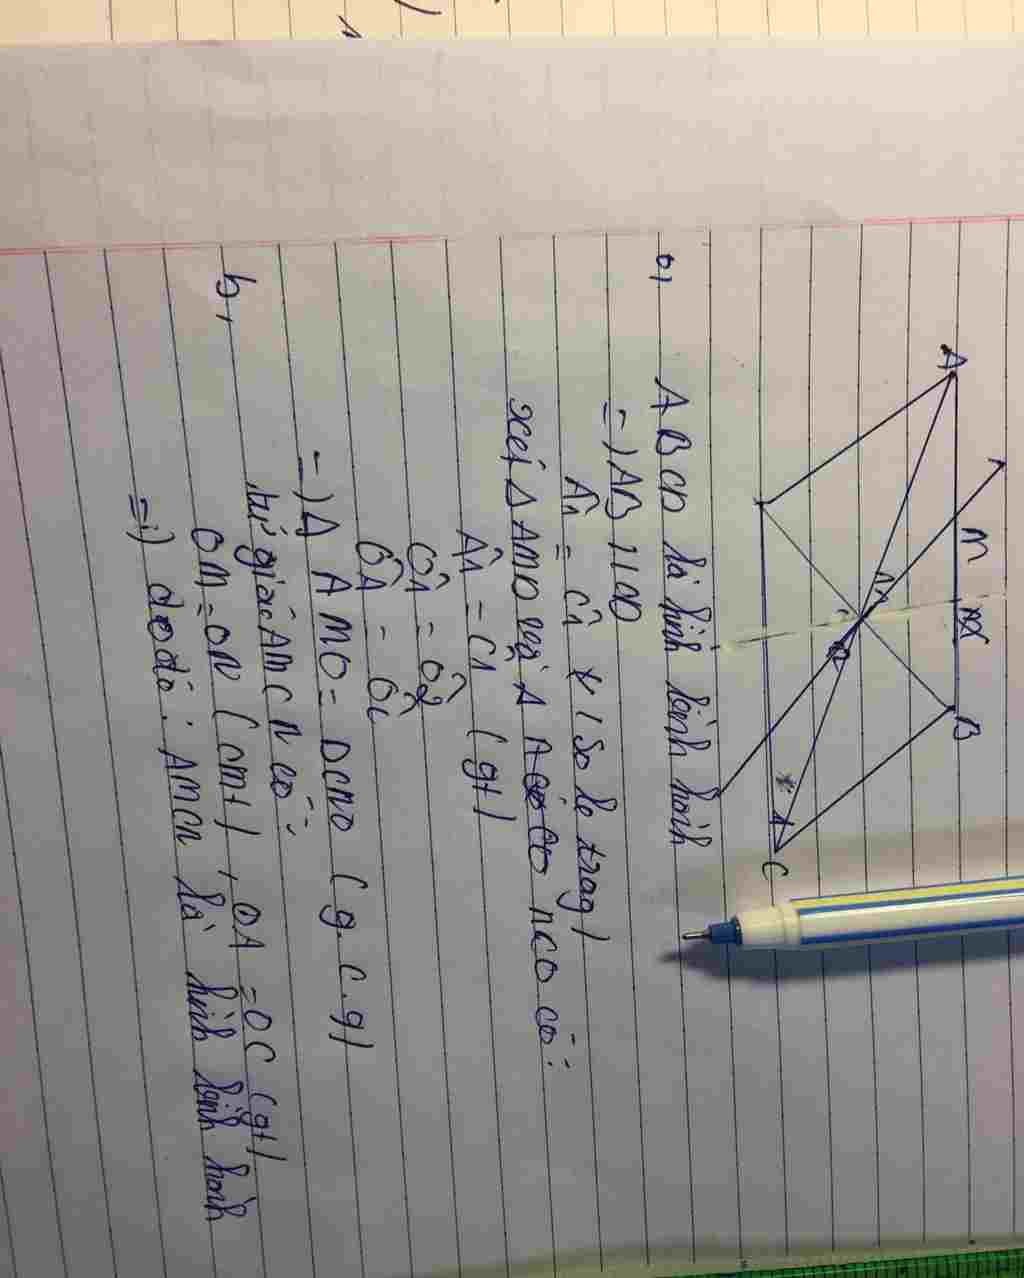 A
M
B
C
a, ABCD là hình bình hành
=) AB // CD
Â1 = Ĉ1 ( so le trog )
xét Δ AMO và Δ NCO có:
Â1 = Ĉ1 ( gt )
Ô1 = Ô2
OA = OC
=) Δ AMO = ΔCNO ( g.c.g )
b, tứ giác AMCN có:
OM = ON ( cmt ) , OA = OC (gt)
=) do đó : AMCN là hình bình hành